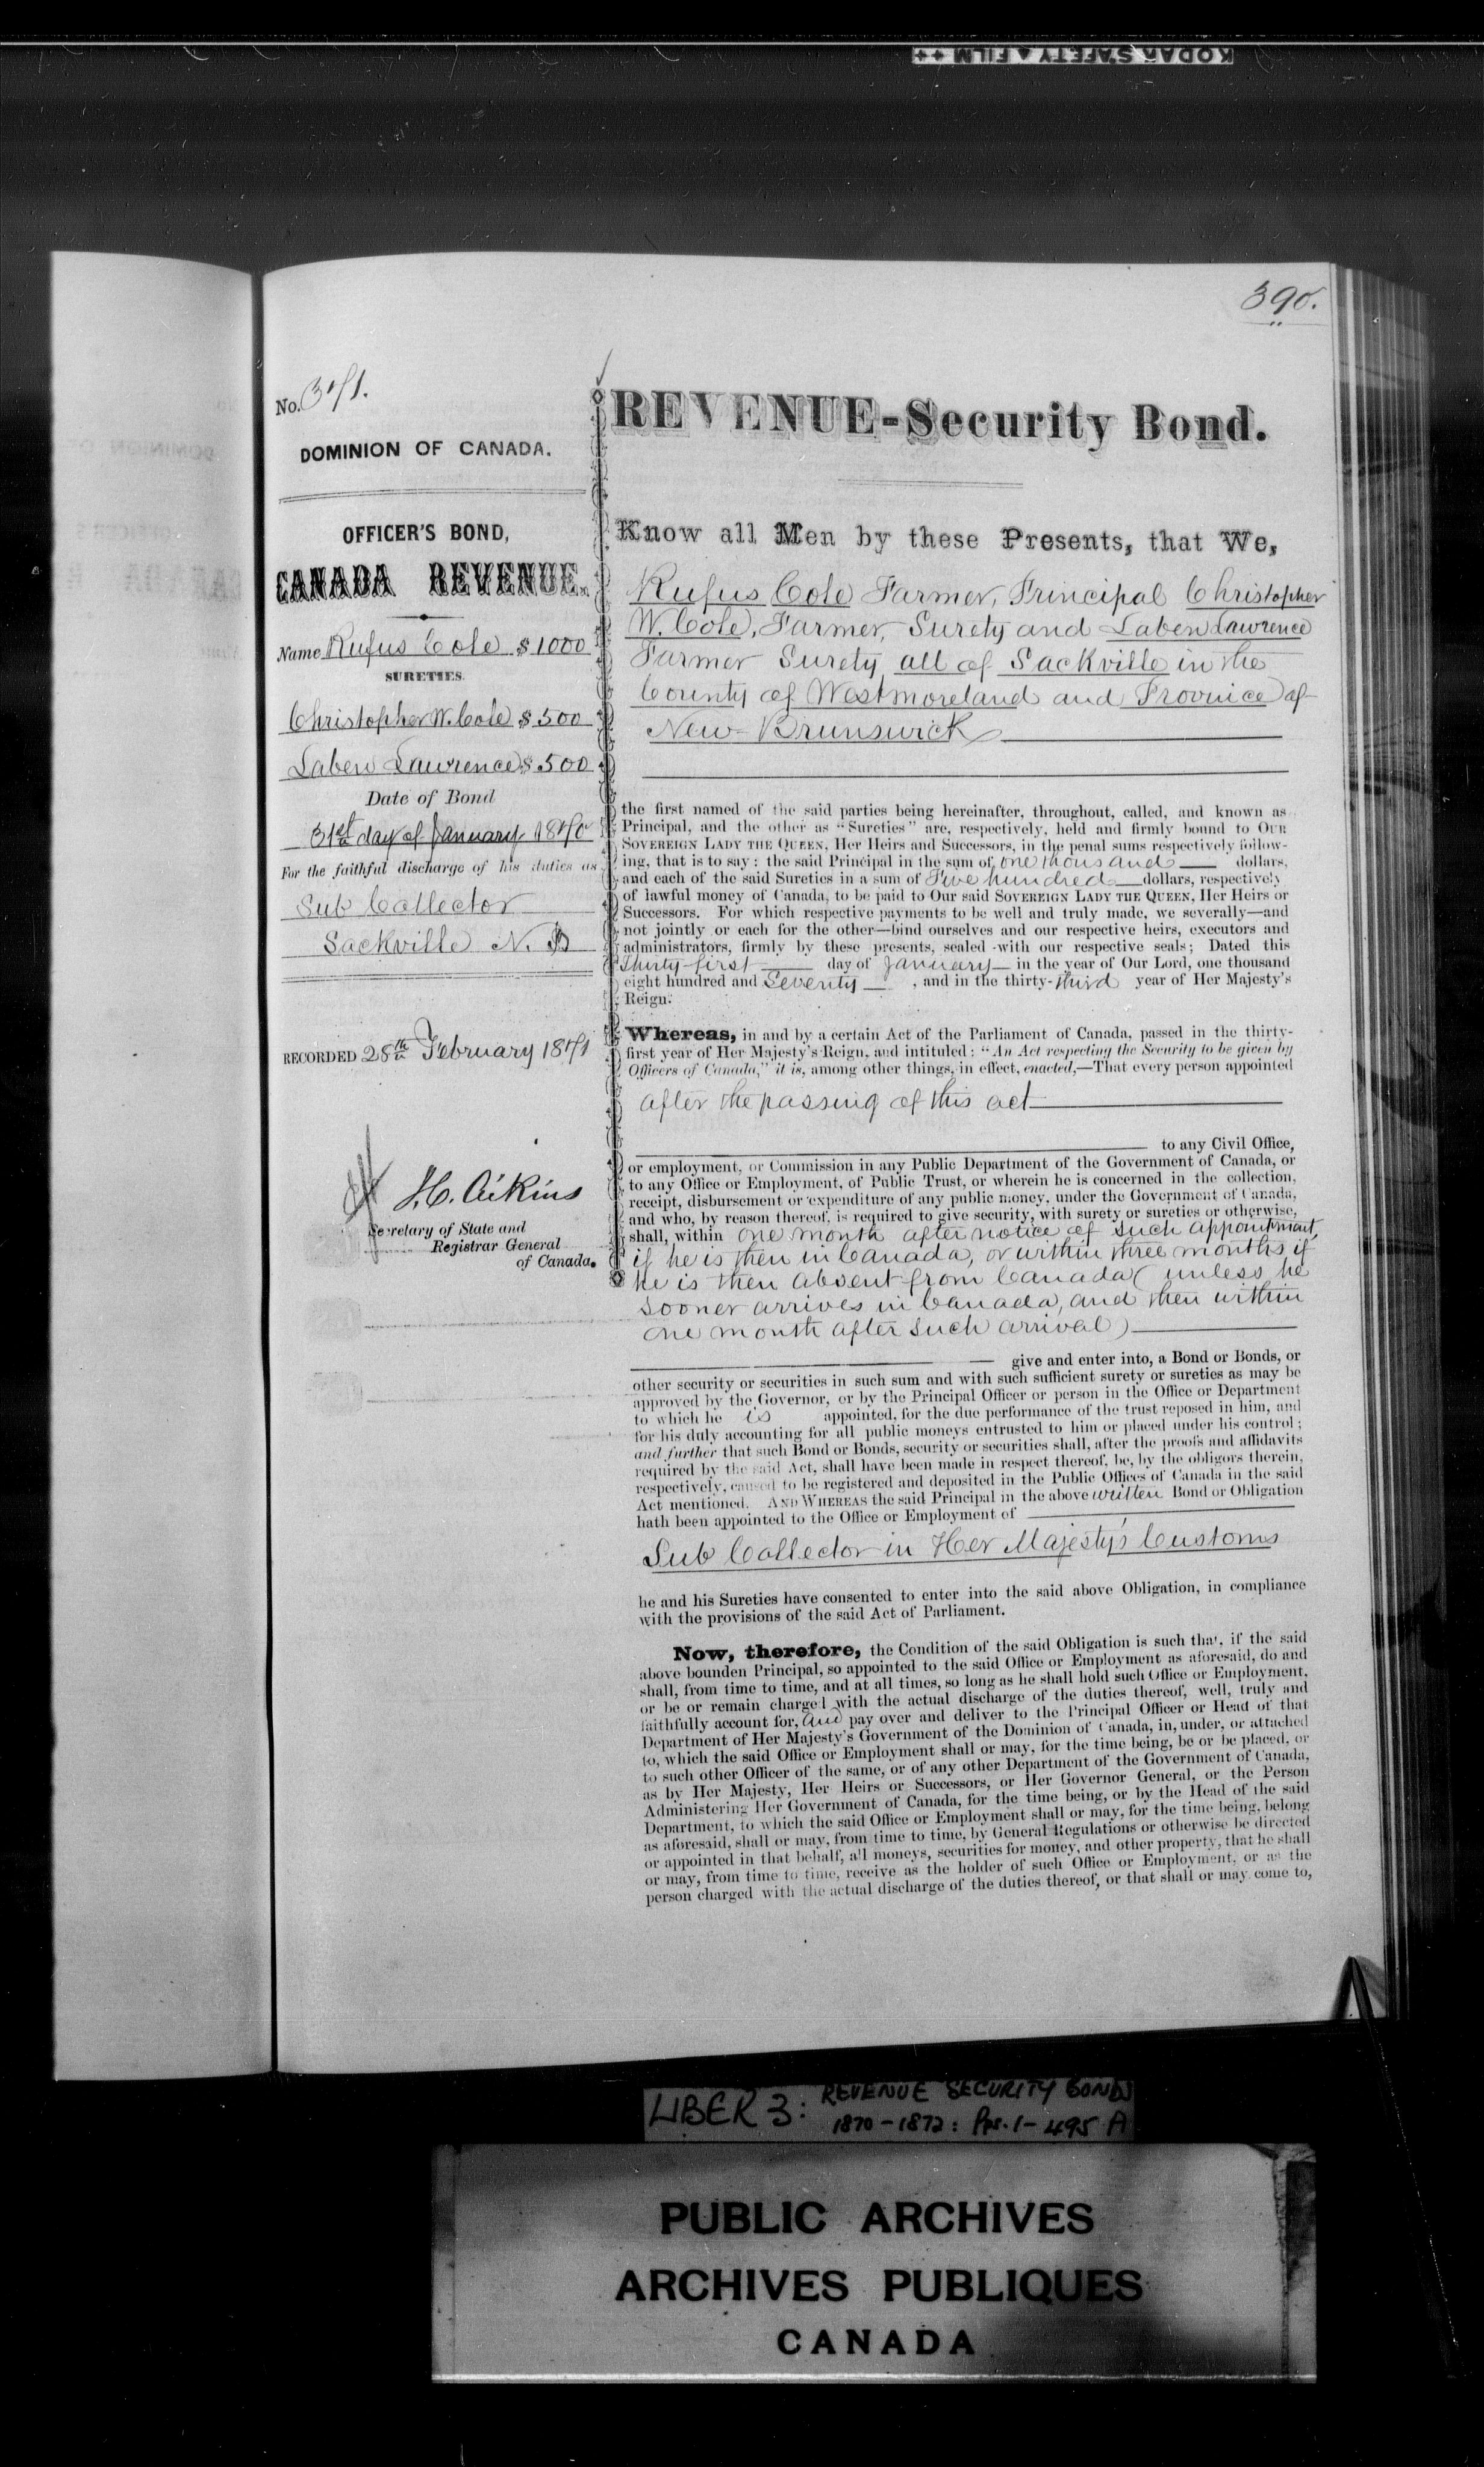 KODAK SAFETY FILM ++
390.
No. 371.
DOMINION OF CANADA.
OFFICER'S BOND,
CANADA REVENUE.
Name Rufus Cole $1000
SURETIES.
Christopher W. Cole $500
Laben Lawrence $500
Date of Bond
31st day of January 1870
For the faithful discharge of his duties as
Sub Collector
Sackville N. B
RECORDED 28th February 1871
J.C. Aikins
Secretary of State and
Registrar General
of Canada.
REVENUE-Security Bond.
Know all Men by these Presents, that We,
Rufus Cole Farmer, Principal Christopher
W. Cole, Farmer, Surety and Laben Lawrence
Farmer Surety all of Sackville in the
County of Westmoreland and Province of
New-Brunswick
the first named of the said parties being hereinafter, throughout, called, and known as
Principal, and the other as "Sureties" are, respectively, held and firmly bound to OUR
SOVEREIGN LADY THE QUEEN, Her Heirs and Successors, in the penal sums respectively follow-
ing, that is to say: the said Principal in the sum of one thousand dollars,
and each of the said Sureties in a sum of Five hundred dollars, respectively
of lawful money of Canada, to be paid to Our said SOVEREIGN LADY THE QUEEN, Her Heirs or
Successors. For which respective payments to be well and truly made, we severally—and
not jointly or each for the other—bind ourselves and our respective heirs, executors and
administrators, firmly by these presents, sealed with our respective seals; Dated this
Thirty-first day of January in the year of Our Lord, one thousand
eight hundred and Seventy , and in the thirty-third year of Her Majesty's
Reign.
Whereas, in and by a certain Act of the Parliament of Canada, passed in the thirty-
first year of Her Majesty's Reign, and intituled: "An Act respecting the Security to be given by
Officers of Canada," it is, among other things, in effect, enacted,—That every person appointed
after the passing of this act
to any Civil Office,
or employment, or Commission in any Public Department of the Government of Canada, or
to any Office or Employment, of Public Trust, or wherein he is concerned in the collection,
receipt, disbursement or expenditure of any public money, under the Government of Canada,
and who, by reason thereof, is required to give security, with surety or sureties or otherwise,
shall, within one month after notice of such appointment,
if he is then in Canada, or within three months if
he is then absent from Canada (unless he
sooner arrives in Canada, and then within
one month after such arrival)
give and enter into, a Bond or Bonds, or
other security or securities in such sum and with such sufficient surety or sureties as may be
approved by the Governor, or by the Principal Officer or person in the Office or Department
to which he is appointed, for the due performance of the trust reposed in him, and
for his duly accounting for all public moneys entrusted to him or placed under his control;
and further that such Bond or Bonds, security or securities shall, after the proofs and affidavits
required by the said Act, shall have been made in respect thereof, be, by the obligors therein,
respectively, caused to be registered and deposited in the Public Offices of Canada in the said
Act mentioned. AND WHEREAS the said Principal in the above written Bond or Obligation
hath been appointed to the Office or Employment of
Sub Collector in Her Majesty's Customs
he and his Sureties have consented to enter into the said above Obligation, in compliance
with the provisions of the said Act of Parliament.
Now, therefore, the Condition of the said Obligation is such that, if the said
above bounden Principal, so appointed to the said Office or Employment as aforesaid, do and
shall, from time to time, and at all times, so long as he shall hold such Office or Employment,
or be or remain charged with the actual discharge of the duties thereof, well, truly and
faithfully account for, and pay over and deliver to the Principal Officer or Head of that
Department of Her Majesty's Government of the Dominion of Canada, in, under, or attached
to, which the said Office or Employment shall or may, for the time being, be or be placed, or
to such other Officer of the same, or of any other Department of the Government of Canada,
as by Her Majesty, Her Heirs or Successors, or Her Governor General, or the Person
Administering Her Government of Canada, for the time being, or by the Head of the said
Department, to which the said Office or Employment shall or may, for the time being, belong
as aforesaid, shall or may, from time to time, by General Regulations or otherwise be directed
or appointed in that behalf, all moneys, securities for money, and other property, that he shall
or may, from time to time, receive as the holder of such Office or Employment, or as the
person charged with the actual discharge of the duties thereof, or that shall or may come to,
LIBER 3: REVENUE SECURITY BONDS
1870-1872: Pps. 1-495 A
PUBLIC ARCHIVES
ARCHIVES PUBLIQUES
CANADA